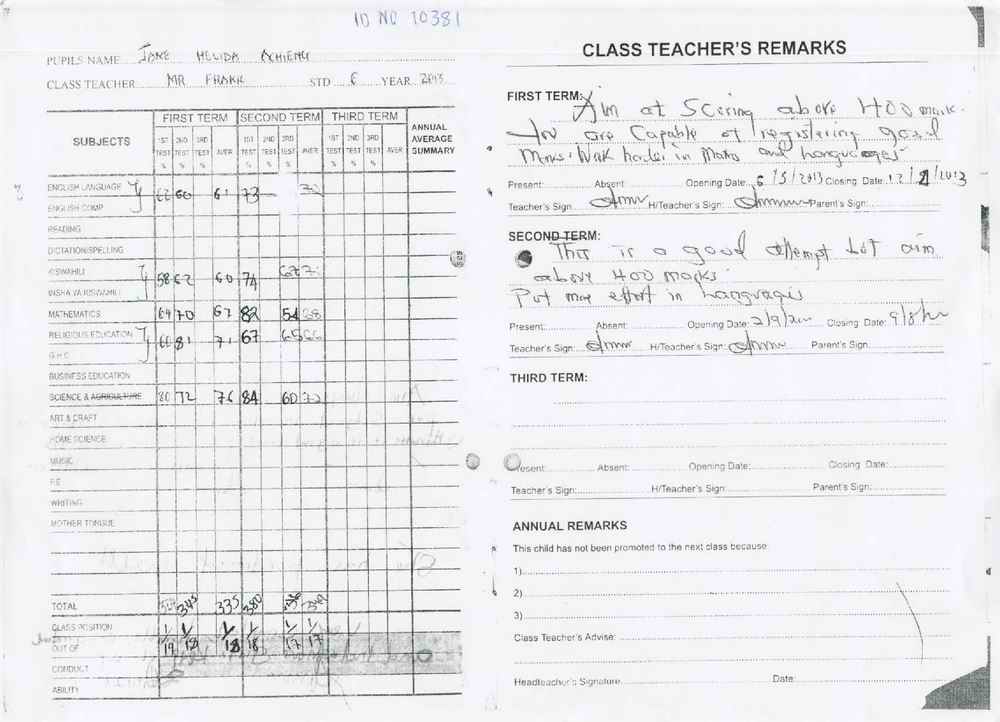 ID NO 10381
PUPILS NAME JANE HELIDA ACHIENG
CLASS TEACHER MR FRANK STD 6 YEAR 2013
SUBJECTS FIRST TERM SECOND TERM THIRD TERM ANNUAL AVERAGE SUMMARY
1ST TEST % 2ND TEST % 3RD TEST % AVER 1ST TEST % 2ND TEST % 3RD TEST % AVER 1ST TEST % 2ND TEST % 3RD TEST % AVER
ENGLISH LANGUAGE 62 60 61 73 70
ENGLISH COMP
READING
DICTATION/SPELLING
KISWAHILI 58 62 60 74 67
INSHA YA KISWAHILI
MATHEMATICS 64 70 67 82 54 68
RELIGIOUS EDUCATION 60 81 71 67 65 66
G.H.C
BUSINESS EDUCATION
SCIENCE & AGRICULTURE 80 72 76 84 60 72
ART & CRAFT
HOME SCIENCE
MUSIC
P.E
WRITING
MOTHER TONGUE
TOTAL 345 335 380
CLASS POSITION 1 1 1 1 1 1
OUT OF 19 18 18 18 17 17
CONDUCT
ABILITY
CLASS TEACHER'S REMARKS
FIRST TERM: Aim at Scoring above 400 mark.
You are Capable of registering good
Marks. Work harder in Maths and Languages
Present: Absent: Opening Date: 6/5/2013 Closing Date:
Teacher's Sign: H/Teacher's Sign: Parent's Sign:
SECOND TERM:
This is a good attempt but aim
above 400 marks.
Put more effort in Languages
Present: Absent: Opening Date: Closing Date:
Teacher's Sign: H/Teacher's Sign: Parent's Sign:
THIRD TERM:
Present: Absent: Opening Date: Closing Date:
Teacher's Sign: H/Teacher's Sign: Parent's Sign:
ANNUAL REMARKS
This child has not been promoted to the next class because
1)
2)
3)
Class Teacher's Advise:
Headteacher's Signature Date: